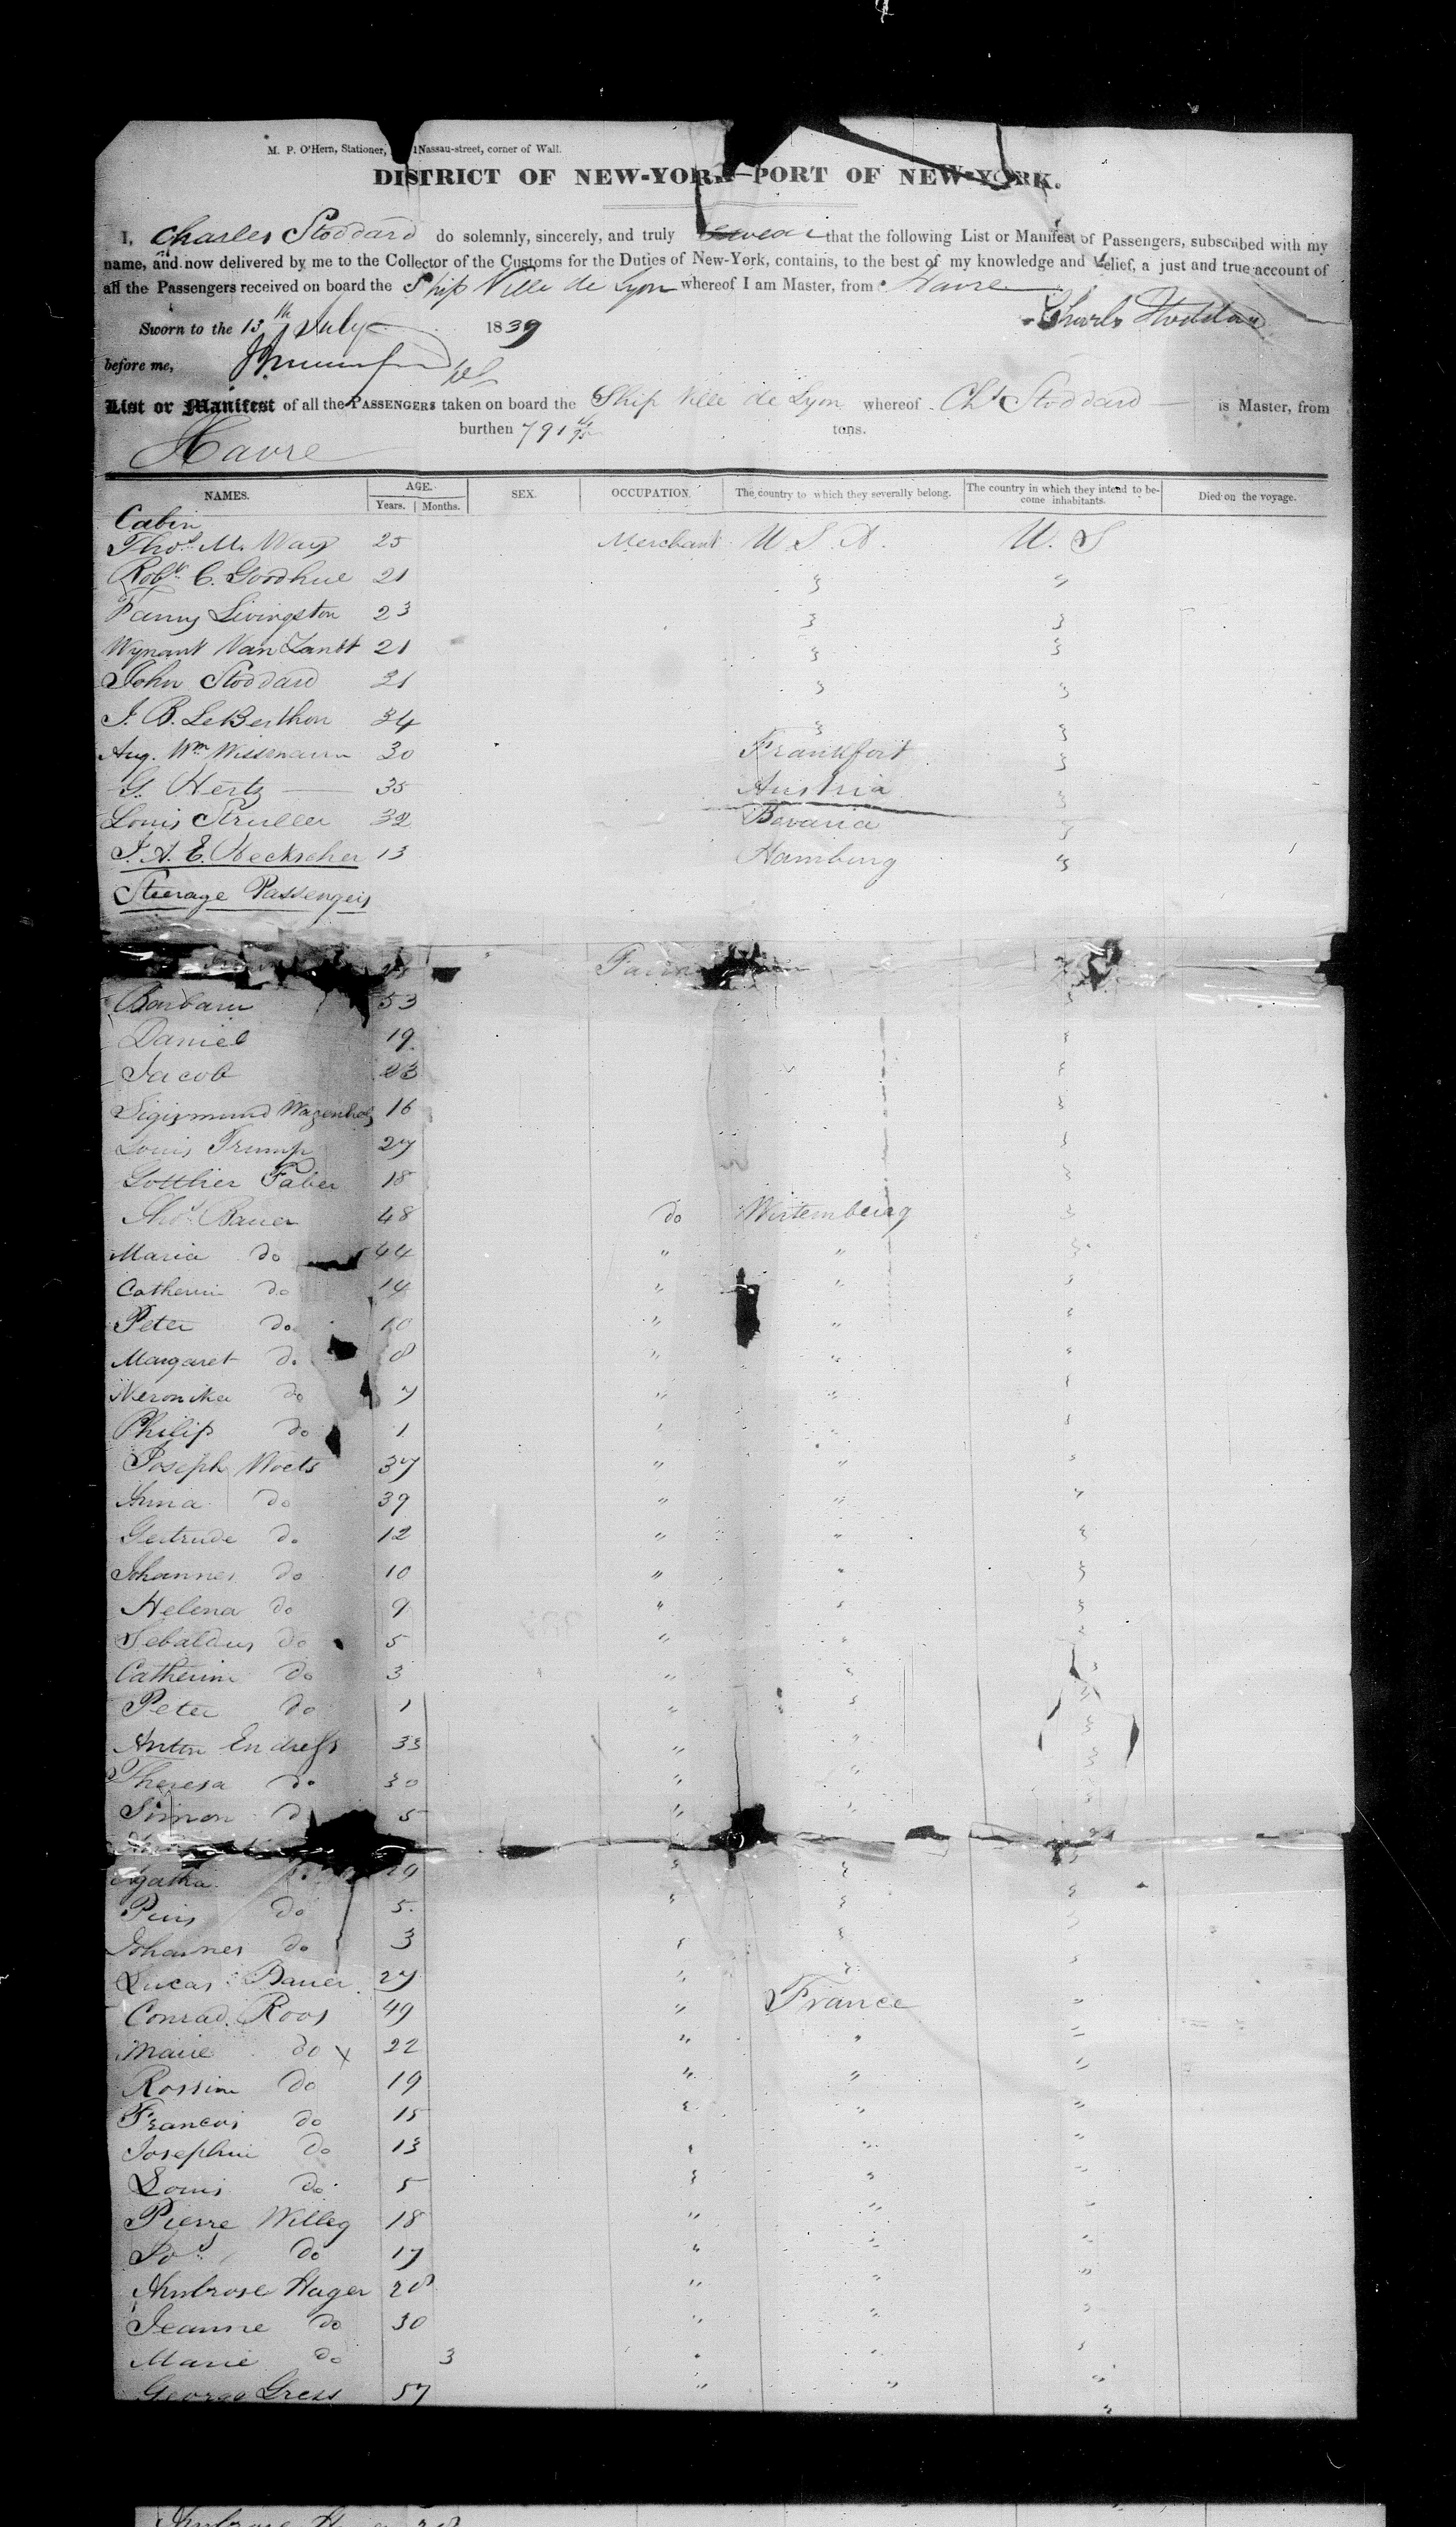 M. P. O'Hern, Stationer, Nassau-street, corner of Wall.
DISTRICT OF NEW-YORK—PORT OF NEW-YORK.
I, Charles Stoddard do solemnly, sincerely, and truly swear that the following List or Manifest of Passengers, subscribed with my
name, and now delivered by me to the Collector of the Customs for the Duties of New-York, contains, to the best of my knowledge and belief, a just and true account of
all the Passengers received on board the Ship Ville de Lyon whereof I am Master, from Havre
Sworn to the 13th July 1839 Charles Stoddard
before me,
List or Manifest of all the PASSENGERS taken on board the Ship Ville de Lyon whereof Chs Stoddard is Master, from
Havre burthen 791 tons.
NAMES. AGE. Years. Months. SEX. OCCUPATION. The country to which they severally belong. The country in which they intend to become inhabitants. Died on the voyage.
Cabin
Thos. M. Ways 25 Merchant U S A. U. S
Robt. C. Goodhue 21 " "
Fanny Livingston 23 " "
Wynant Van Zandt 21 " "
John Stoddard 21 " "
J. B. LeBerthon 34 " "
Aug. Wm Wissmann 30 Frankfort "
G. Hertz 35 Austria "
Louis Struller 32 Bavaria "
J. A. E. Heckscher 13 Hamburg "
Steerage Passengers
Barbara 53 "
Daniel 19 "
Jacob 23 "
Sigismund 16 "
Louis Trump 27 "
Gottlier Faber 18 "
Thos. Bauer 48 do Wirtemberg "
Maria do 44 " " "
Catherin do 14 " " "
Peter do 10 " " "
Margaret do 8 " " "
Veronika do 7 " " "
Philip do 1 " " "
Joseph Woets 37 " " "
Anna do 39 " " "
Gertrude do 12 " " "
Johannes do 10 " " "
Helena do 9 " " "
Sebaldus do 5 " " "
Catherin do 3 " " "
Peter do 1 " " "
Anton Endress 33 " " "
Theresa do 30 " " "
Simon d 5 " " "
Agatha 29 " " "
Pius do 5 " " "
Johannes do 3 " " "
Lucas Bauer 27 " " "
Conrad Roos 49 " France "
Marie do x 22 " " "
Rossin do 19 " " "
Francois do 15 " " "
Josephin do 13 " " "
Louis do 5 " " "
Pierre Willeg 18 " " "
Jos. do 17 " " "
Ambrose Hager 28 " " "
Jeanne do 30 " " "
Marie do 3 " " "
George Gress 57 " " "